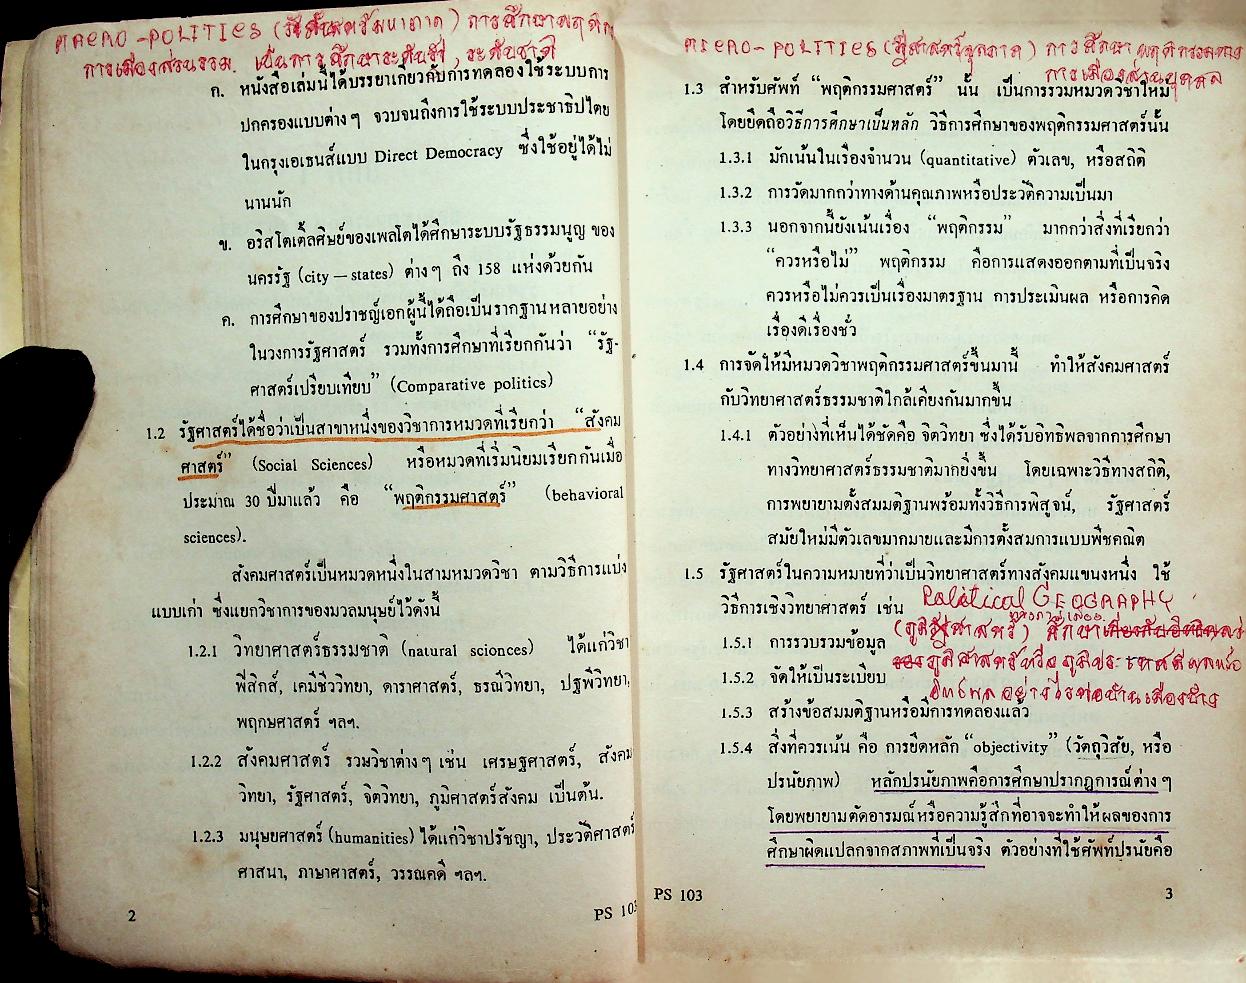 MACRO-POLITICS (รัฐศาสตร์มหภาค) การศึกษาพฤติก
การเมืองส่วนรวม. เป็นการศึกษาระดับรัฐ, ระดับชาติ
ก. หนังสือเล่มนี้ได้บรรยาเกี่ยวกับการทดลองใช้ระบบการ
ปกครองแบบต่าง ๆ จวบจนถึงการใช้ระบบประชาธิปไตย
ในกรุงเอเธนส์แบบ Direct Democracy ซึ่งใช้อยู่ได้ไม่
นานนัก
ข. อริสโตเติ้ลศิษย์ของเพลโตได้ศึกษาระบบรัฐธรรมนูญ ของ
นครรัฐ (city – states) ต่าง ๆ ถึง 158 แห่งด้วยกัน
ค. การศึกษาของปราชญ์เอกผู้นี้ได้ถือเป็นรากฐานหลายอย่าง
ในวงการรัฐศาสตร์ รวมทั้งการศึกษาที่เรียกกันว่า “รัฐ-
ศาสตร์เปรียบเทียบ” (Comparative politics)
1.2 รัฐศาสตร์ได้ชื่อว่าเป็นสาขาหนึ่งของวิชาการหมวดที่เรียกว่า “สังคม
ศาสตร์” (Social Sciences) หรือหมวดที่เริ่มนิยมเรียกกันเมื่อ
ประมาณ 30 ปีมาแล้ว คือ “พฤติกรรมศาสตร์” (behavioral
sciences).
สังคมศาสตร์เป็นหมวดหนึ่งในสามหมวดวิชา ตามวิธีการแบ่ง
แบบเก่า ซึ่งแยกวิชาการของมวลมนุษย์ไว้ดังนี้
1.2.1 วิทยาศาสตร์ธรรมชาติ (natural scionces) ได้แก่วิชา
ฟิสิกส์, เคมีชีววิทยา, ดาราศาสตร์, ธรณีวิทยา, ปฐพีวิทยา,
พฤกษศาสตร์ ฯลฯ.
1.2.2 สังคมศาสตร์ รวมวิชาต่าง ๆ เช่น เศรษฐศาสตร์, สังคม
วิทยา, รัฐศาสตร์, จิตวิทยา, ภูมิศาสตร์สังคม เป็นต้น.
1.2.3 มนุษยศาสตร์ (humanities) ได้แก่วิชาปรัชญา, ประวัติศาสตร์
ศาสนา, ภาษาศาสตร์, วรรณคดี ฯลฯ.
2 PS 103
MICRO-POLITICS (รัฐศาสตร์จุลภาค) การศึกษาพฤติกรรมทาง
การเมืองส่วนบุคคล
1.3 สำหรับศัพท์ “พฤติกรรมศาสตร์” นั้น เป็นการรวมหมวดวิชาใหม่
โดยยึดถือวิธีการศึกษาเป็นหลัก วิธีการศึกษาของพฤติกรรมศาสตร์นั้น
1.3.1 มักเน้นในเรื่องจำนวน (quantitative) ตัวเลข, หรือสถิติ
1.3.2 การวัดมากกว่าทางด้านคุณภาพหรือประวัติความเป็นมา
1.3.3 นอกจากนี้ยังเน้นเรื่อง “พฤติกรรม” มากกว่าสิ่งที่เรียกว่า
“ควรหรือไม่” พฤติกรรม คือการแสดงออกตามที่เป็นจริง
ควรหรือไม่ควรเป็นเรื่องมาตรฐาน การประเมินผล หรือการคิด
เรื่องดีเรื่องชั่ว
1.4 การจัดให้มีหมวดวิชาพฤติกรรมศาสตร์ขึ้นมานี้ ทำให้สังคมศาสตร์
กับวิทยาศาสตร์ธรรมชาติใกล้เคียงกันมากขึ้น
1.4.1 ตัวอย่างที่เห็นได้ชัดคือ จิตวิทยา ซึ่งได้รับอิทธิพลจากการศึกษา
ทางวิทยาศาสตร์ธรรมชาติมากยิ่งขึ้น โดยเฉพาะวิธีทางสถิติ,
การพยายามตั้งสมมติฐานพร้อมทั้งวิธีการพิสูจน์, รัฐศาสตร์
สมัยใหม่มีตัวเลขมากมายและมีการตั้งสมการแบบพีชคณิต
1.5 รัฐศาสตร์ในความหมายที่ว่าเป็นวิทยาศาสตร์ทางสังคมแขนงหนึ่ง ใช้
วิธีการเชิงวิทยาศาสตร์ เช่น Political GEOGRAPHY
(ภูมิรัฐศาสตร์) ศึกษา
1.5.1 การรวบรวมข้อมูล
ภูมิศาสตร์หรือภูมิประเทศมีผลหรือ
1.5.2 จัดให้เป็นระเบียบ
อิทธิพลอย่างไรต่อบ้านเมืองบ้าง
1.5.3 สร้างข้อสมมติฐานหรือมีการทดลองแล้ว
1.5.4 สิ่งที่ควรเน้น คือ การยึดหลัก “objectivity” (วัตถุวิสัย, หรือ
ปรนัยภาพ) หลักปรนัยภาพคือการศึกษาปรากฏการณ์ต่าง ๆ
โดยพยายามตัดอารมณ์หรือความรู้สึกที่อาจจะทำให้ผลของการ
ศึกษาผิดแปลกจากสภาพที่เป็นจริง ตัวอย่างที่ใช้ศัพท์ปรนัยคือ
PS 103 3